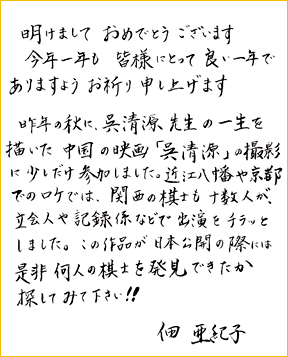 明けまして おめでとう ございます
今年一年も 皆様にとって 良い一年で
ありますよう お祈り 申し上げます
昨年の秋に、呉清源 先生 の一生を
描いた 中国の映画「呉清源」の撮影
に少しだけ参加しました。近江八幡や京都
でのロケでは、関西の棋士も十数人が、
立会人や記録係などで出演をチラッと
しました。この作品が日本公開の際には
是非 何人の棋士を発見できたか
探してみて下さい!!
佃 亜紀子